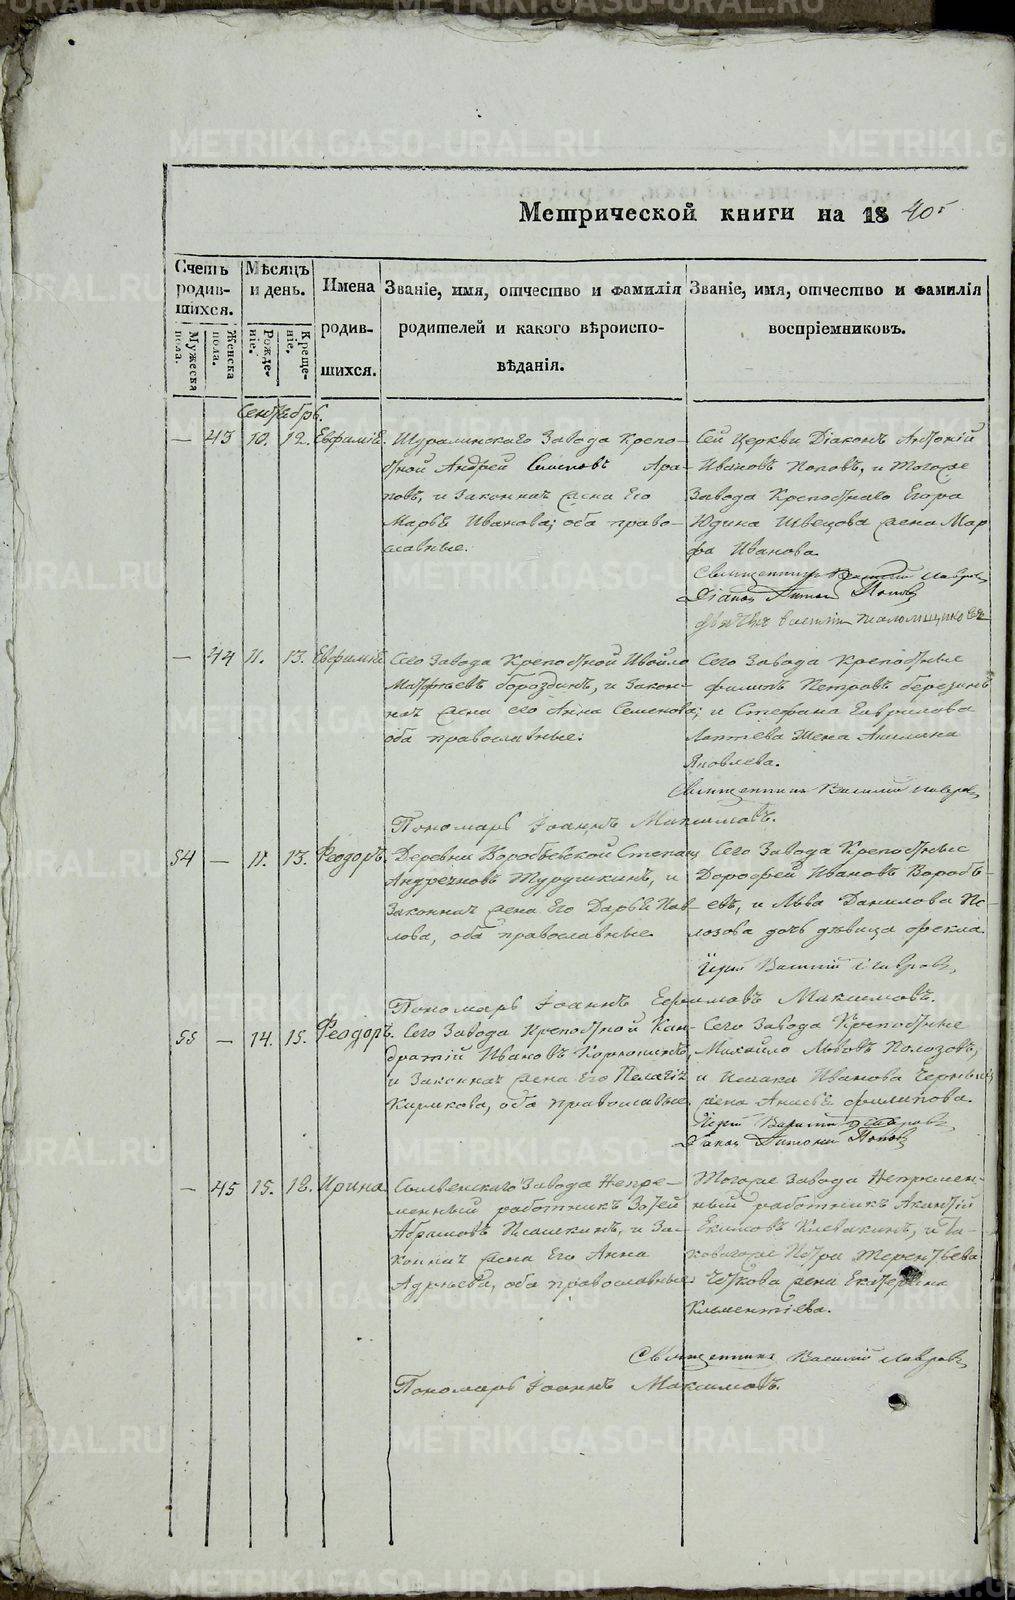 METRIKI.GASO-URAL.RU
Метрической книги на 1840г
Счетъ родив-шихся.
Мѣсяцъ и день.
Имена родив-шихся.
Званіе, имя, отчество и фамилія родителей и какого вѣроиспо-вѣданія.
Званіе, имя, отчество и фамилія воспріемниковъ.
Мужеска пола.
Женска пола.
Рожде-ніе.
Креще-ніе.
Сентябрь.
— 43 10. 12. Евфимія.
Шуралинскаго Завода Крепо-
стной Андрей Семеновъ Ара-
повъ, и законная жена Его
Марья Иванова; оба право-
славные.
Сей церкви Діаконъ Антоній
Ивановъ Поповъ, и тогоже
Завода Крепостнаго Егора
Юдина Швецова жена Мар
фа Иванова
Священникъ Василий Лавровъ
Діаконъ Антоній Поповъ
— 44 11. 13. Евфимія
Сего Завода Крепостной
Матфѣевъ бороздинъ, и закон-
ная жена его Анна Семенова;
оба православные.
Сего Завода крепостные
филипъ Петровъ березинъ
и Стефана Гаврилова
Лаптева жена Акилина
Яковлева.
Священникъ Василий Лавровъ
Пономарь Іоаннъ Максимовъ.
54 — 11. 13. Феодоръ.
Деревни Воробьевской Степанъ
и
Законная жена Его Дарья Пав-
лова, оба православные
Сего Завода Крепостные
Дорофей Ивановъ Воробь-
евъ, и Льва Данилова По-
лозова дочь дѣвица фекла
Іерей Василий Лавровъ
Пономарь Іоаннъ Ефимовъ Максимовъ.
55 — 14. 15. Феодоръ.
Сего Завода Крепостной Кан-
дратій Ивановъ
и Законная жена Его Пелагія
Кирикова, оба православные
Сего Завода Крепостные
Михайло Львовъ Полозовъ,
и Исаака Иванова
жена Анисья филипова.
Іерей Василий Лавровъ
Діаконъ Антоній Поповъ
— 45 15. 18. Ирина
Сылвенскаго Завода Непре-
менный работникъ
Абрамовъ и За-
конная жена Его Анна
оба православные
Тогоже Завода Непремен-
ный работникъ Акинфій
Екимовъ Клевакинъ, и та-
ковагоже Петра Терентьева
жена Екатерина
Клементіева.
Священникъ Василий Лавровъ
Пономарь Іоаннъ Максимовъ.